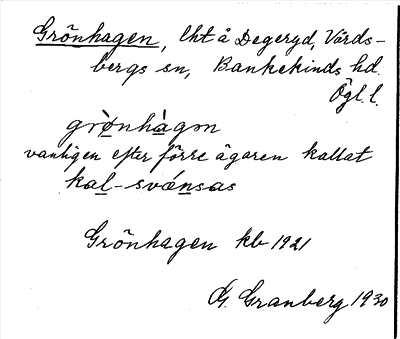 Grönhagen, lht å Degeryd, Vårds-
bergs sn, Bankekinds hd.
Ögl. l.
grønhàgon
vanligen efter förre ägaren kallat
kal-svænsas
Grönhagen kb 1921
G. Granberg 1930